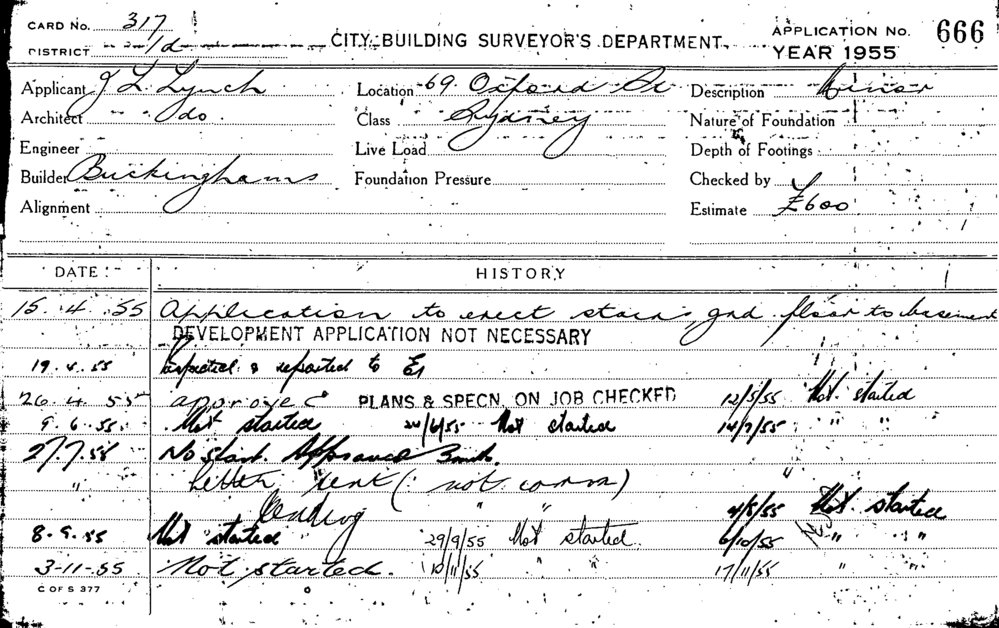 CARD No. 317
DISTRICT 1d
CITY BUILDING SURVEYOR'S DEPARTMENT
APPLICATION No. 666
YEAR 1955
Applicant J L Lynch Location 69 Oxford St Description Minor
Architect do Class Sydney Nature of Foundation
Engineer Live Load Depth of Footings
Builder Buckinghams Foundation Pressure Checked by
Alignment Estimate £600
DATE HISTORY
15. 4. 55 Application to erect stairs grd floor to basement
DEVELOPMENT APPLICATION NOT NECESSARY
19. 4. 55 Inspected & reported to
26. 4. 55 approved PLANS & SPECN. ON JOB CHECKED 12/5/55 Not started
9. 6. 55. Not started 24/6/55 Not started 14/7/55 " "
27.7.55 No start. Approved
" letter sent ( not comm) "
" " 4/8/55 Not started
8. 9. 55 Not started 29/9/55 Not started. 6/10/55 " "
3-11-55 Not started. 10/11/55 " " 17/11/55 " "
C OF S 377